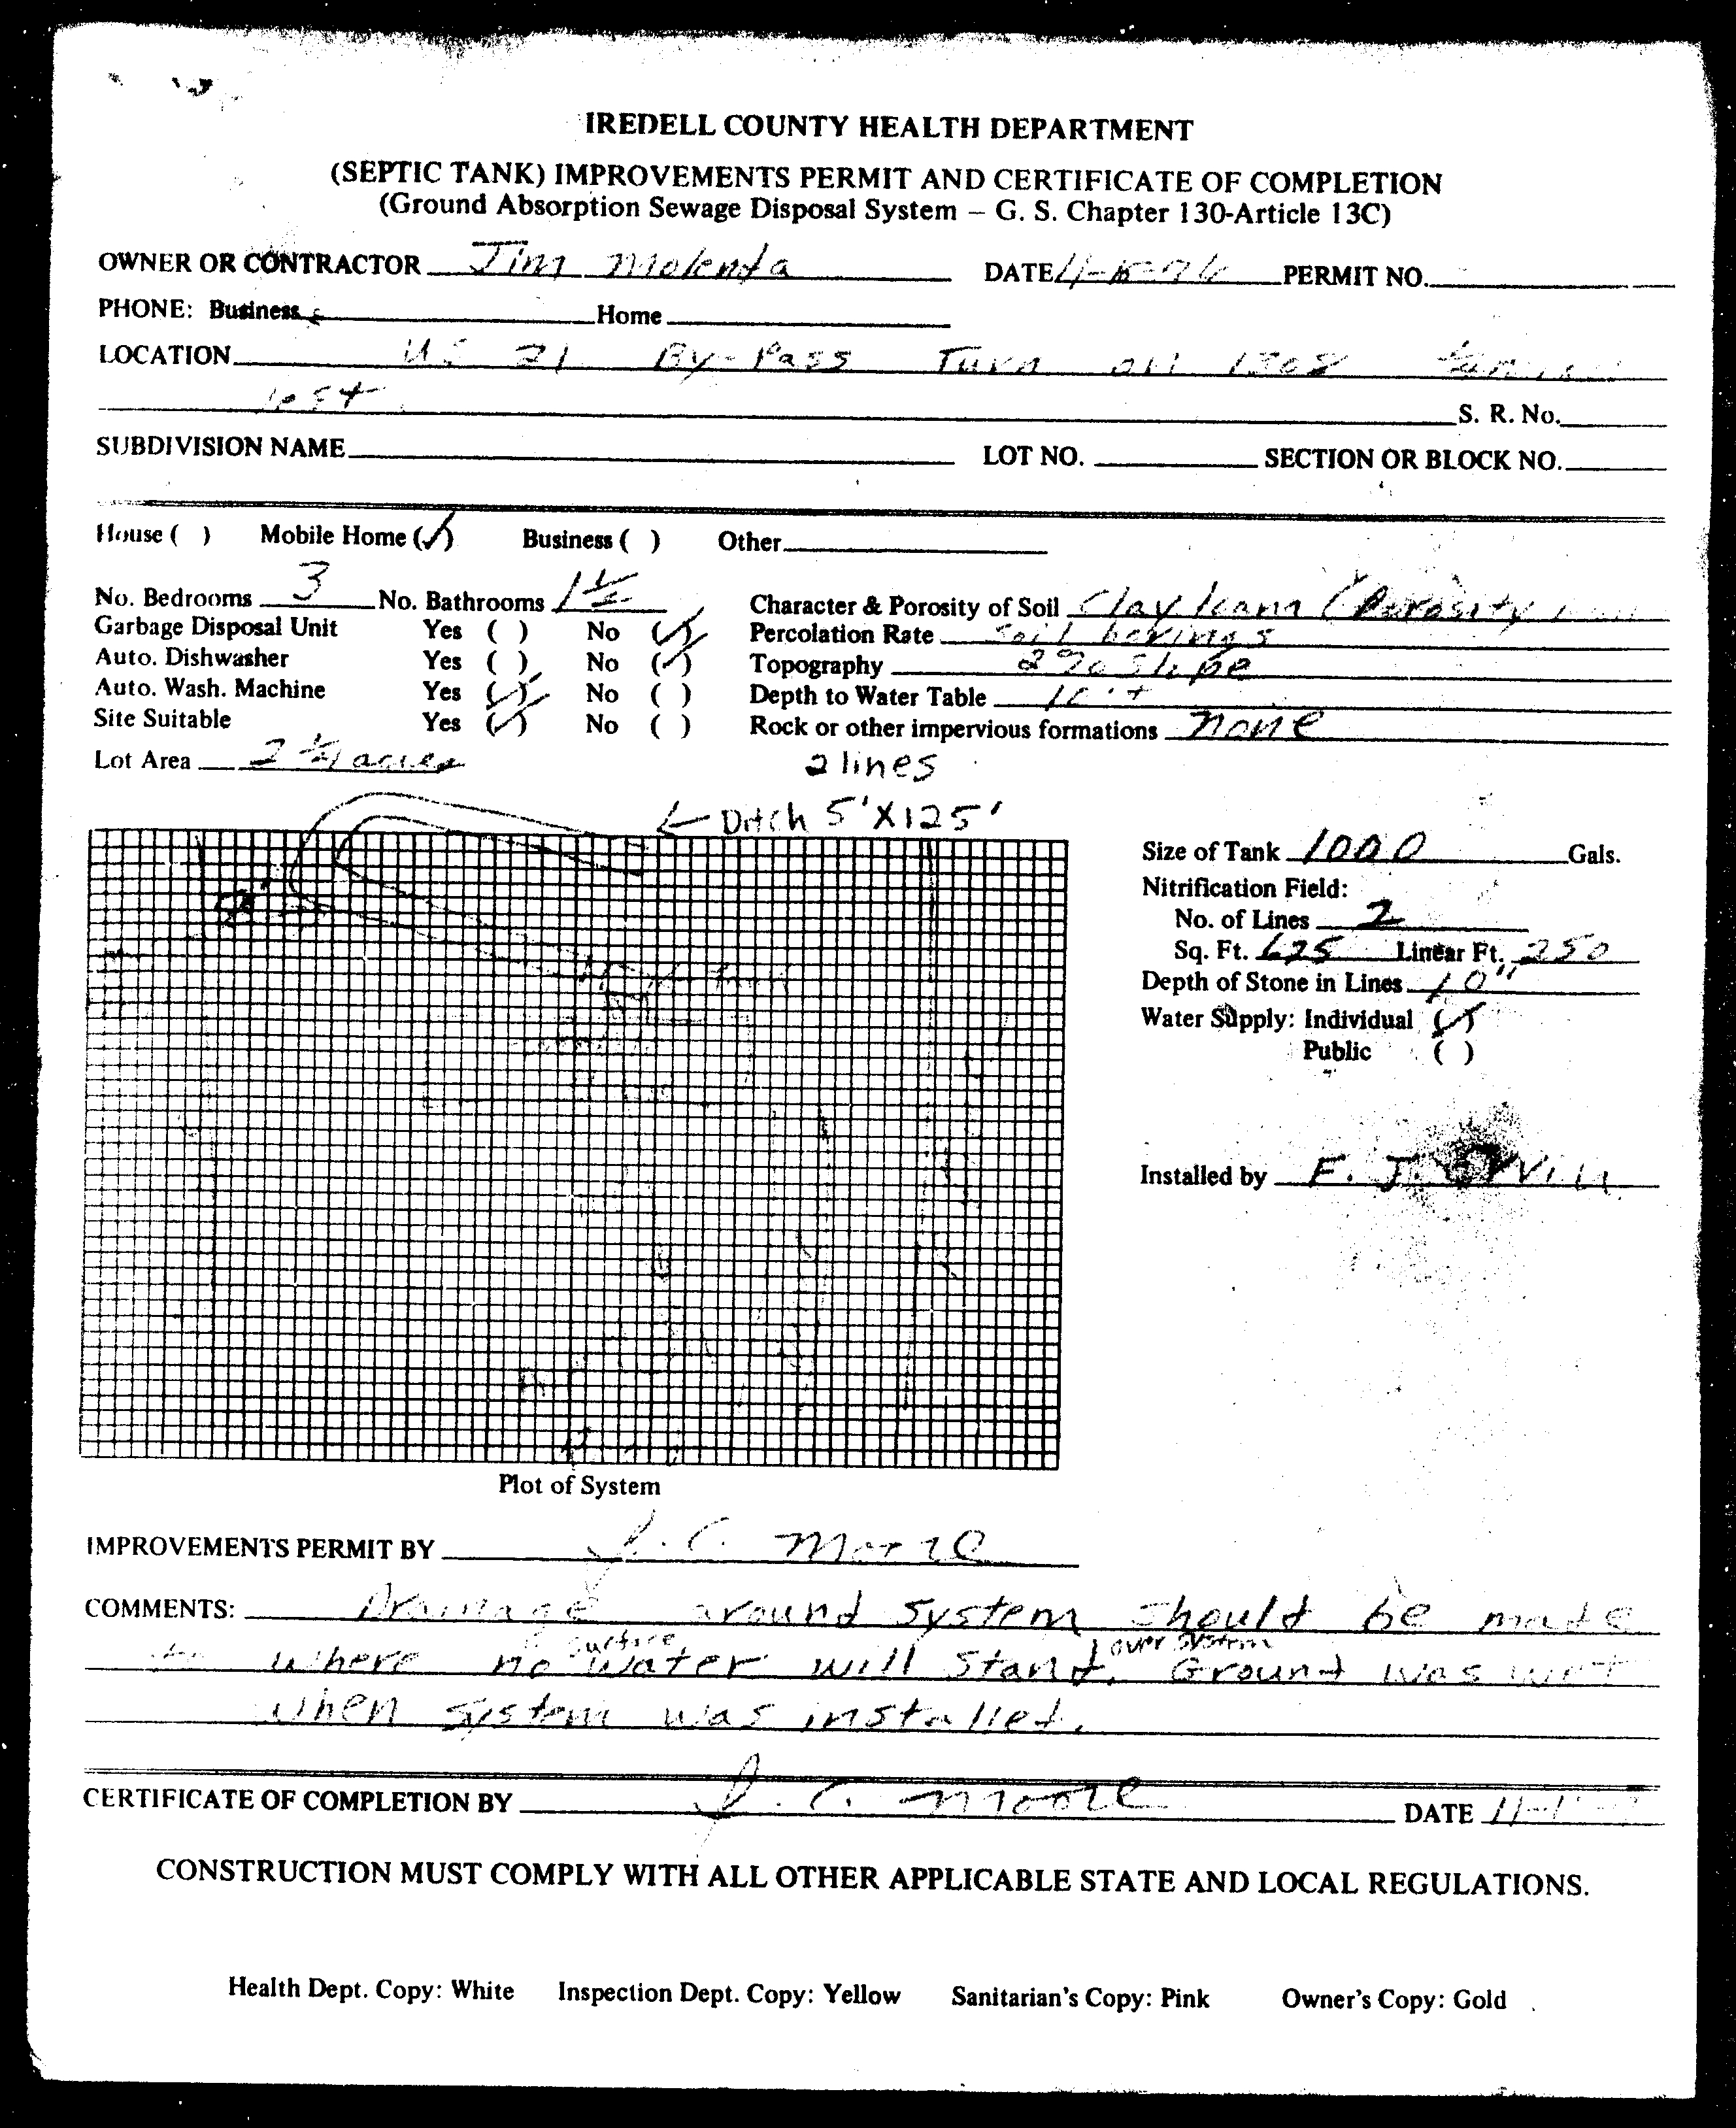 IREDELL COUNTY HEALTH DEPARTMENT
(SEPTIC TANK) IMPROVEMENTS PERMIT AND CERTIFICATE OF COMPLETION
(Ground Absorption Sewage Disposal System – G. S. Chapter 130-Article 13C)
OWNER OR CONTRACTOR Jim Molenda DATE PERMIT NO.
PHONE: Business Home
LOCATION US 21 By-Pass Turn on 1308
lost S. R. No.
SUBDIVISION NAME LOT NO. SECTION OR BLOCK NO.
House ( ) Mobile Home (✓) Business ( ) Other
No. Bedrooms 3 No. Bathrooms 1 1/2 Character & Porosity of Soil Clay loam (Porosity
Garbage Disposal Unit Yes ( ) No (✓) Percolation Rate soil borings
Auto. Dishwasher Yes ( ) No (✓) Topography 2% slope
Auto. Wash. Machine Yes (✓) No ( ) Depth to Water Table 10'+
Site Suitable Yes (✓) No ( ) Rock or other impervious formations none
Lot Area acres 2 lines
← Ditch 5'X125'
Size of Tank 1000 Gals.
Nitrification Field:
No. of Lines 2
Sq. Ft. 625 Linear Ft. 250
Depth of Stone in Lines 10"
Water Supply: Individual (✓)
Public ( )
Installed by F. J.
Plot of System
IMPROVEMENTS PERMIT BY J. C. Moore
COMMENTS: Drainage around system should be made
where no surface water will stand over system. Ground was wet
when system was installed.
CERTIFICATE OF COMPLETION BY J. C. Moore DATE
CONSTRUCTION MUST COMPLY WITH ALL OTHER APPLICABLE STATE AND LOCAL REGULATIONS.
Health Dept. Copy: White Inspection Dept. Copy: Yellow Sanitarian's Copy: Pink Owner's Copy: Gold